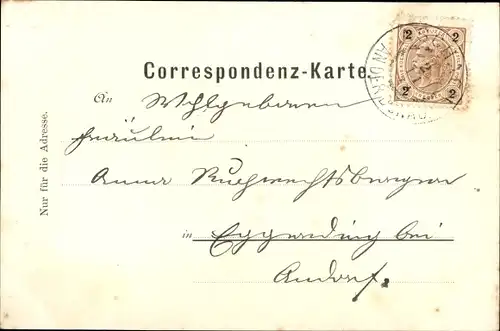 Correspondenz-Karte.
An Wohlgeboren
Fräulein
Anna Ruprechtsberger
in Eggerding bei
Andorf.
Nur für die Adresse.
2 2
2 2